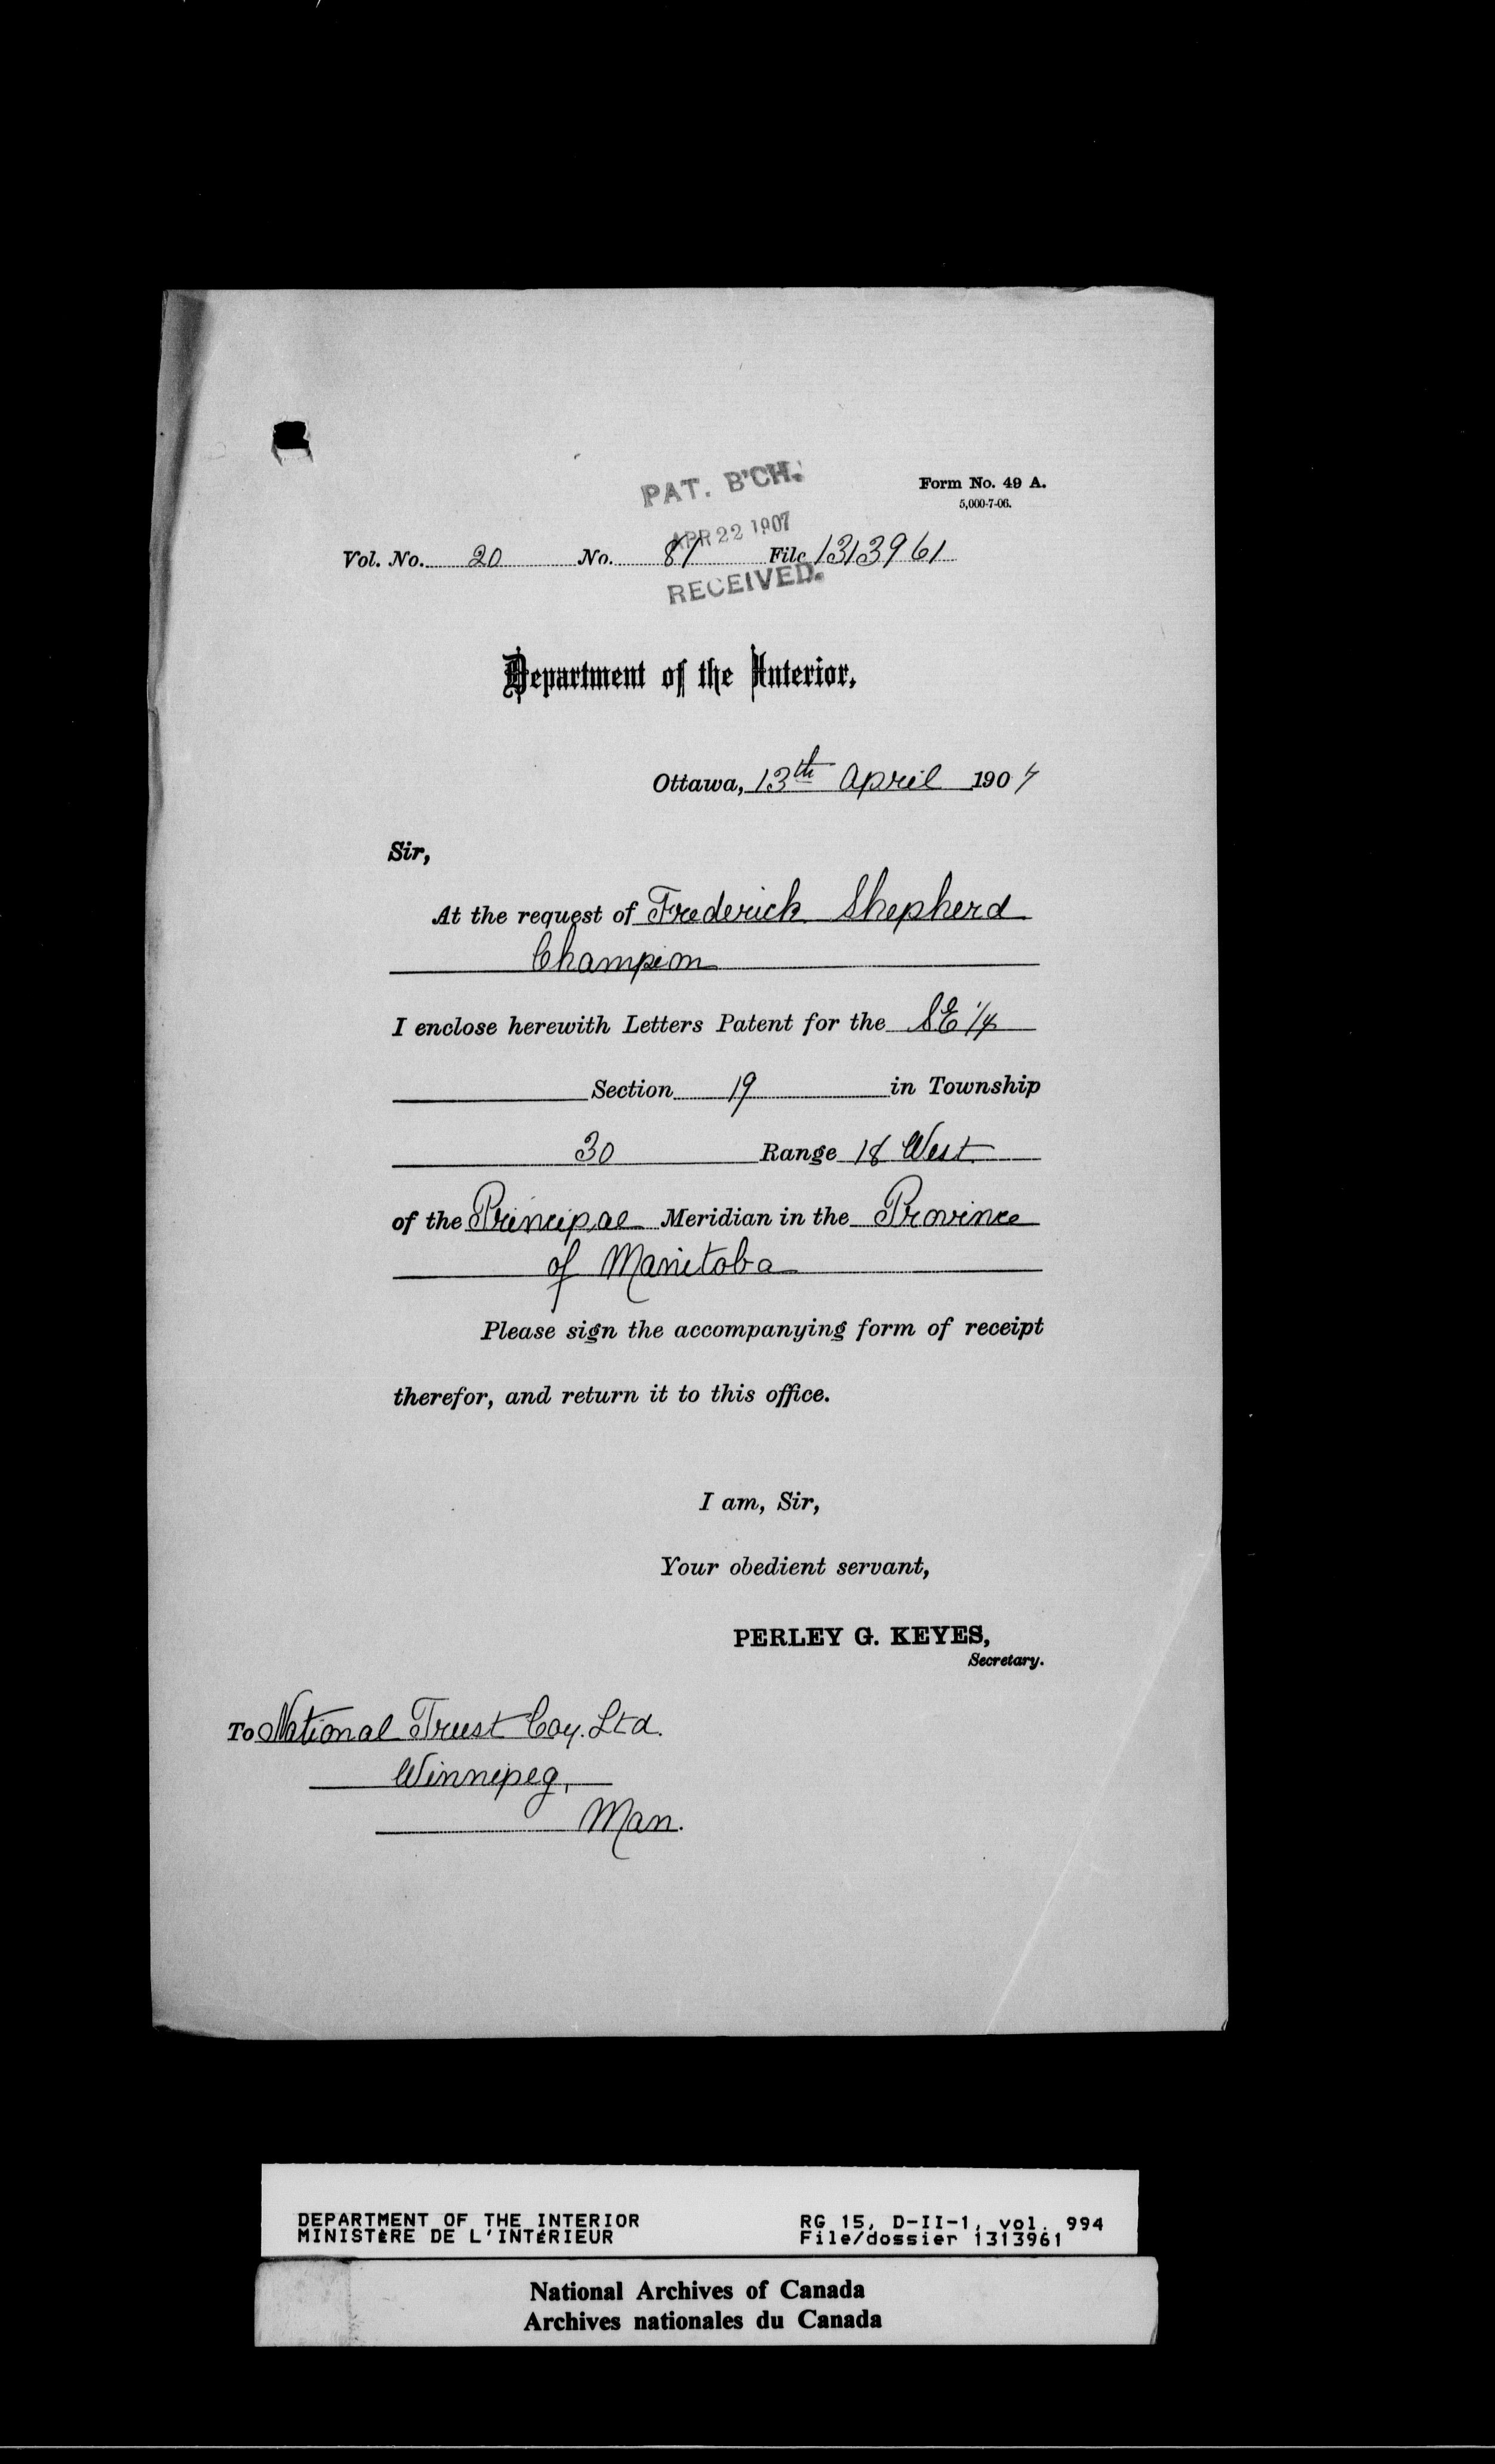 PAT. B'CH.
Form No. 49 A.
5,000-7-06.
APR 22 1907
Vol. No. 20 No. 81 File 1313961
RECEIVED.
Department of the Interior,
Ottawa, 13th April 1907
Sir,
At the request of Frederick Shepherd
Champion
I enclose herewith Letters Patent for the SE 1/4
Section 19 in Township
30 Range 18 West
of the Principal Meridian in the Province
of Manitoba
Please sign the accompanying form of receipt
therefor, and return it to this office.
I am, Sir,
Your obedient servant,
PERLEY G. KEYES,
Secretary.
To National Trust Coy. Ltd.
Winnipeg,
Man.
DEPARTMENT OF THE INTERIOR RG 15, D-II-1, vol. 994
MINISTÈRE DE L'INTÉRIEUR File/dossier 1313961
National Archives of Canada
Archives nationales du Canada